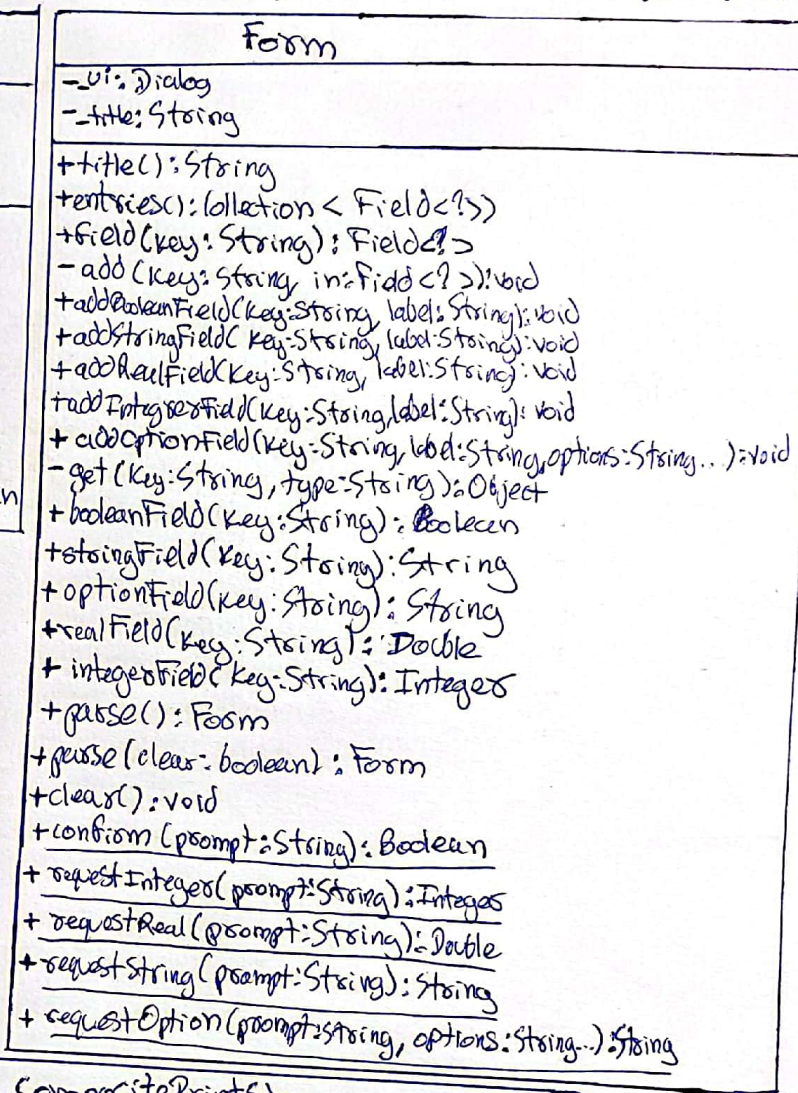 Form
-_ui: Dialog
-_title: String
+title(): String
+entries(): Collection < Field<?>>
+field(key: String): Field<?>
-add(key: String, in: Field<?>): void
+addBooleanField(key: String, label: String): void
+addStringField(key: String, label: String): void
+addRealField(key: String, label: String): void
+addIntegerField(key: String, label: String): void
+ addOptionField(key: String, label: String, options: String...): void
-get(key: String, type: String): Object
n
+booleanField(key: String): Boolean
+stringField(key: String): String
+optionField(key: String): String
+realField(key: String): Double
+ integerField(key: String): Integer
+parse(): Form
+parse(clear: boolean): Form
+clear(): void
+confirm(prompt: String): Boolean
+ requestInteger(prompt: String): Integer
+ requestReal(prompt: String): Double
+ requestString(prompt: String): String
+ requestOption(prompt: String, options: String...): String